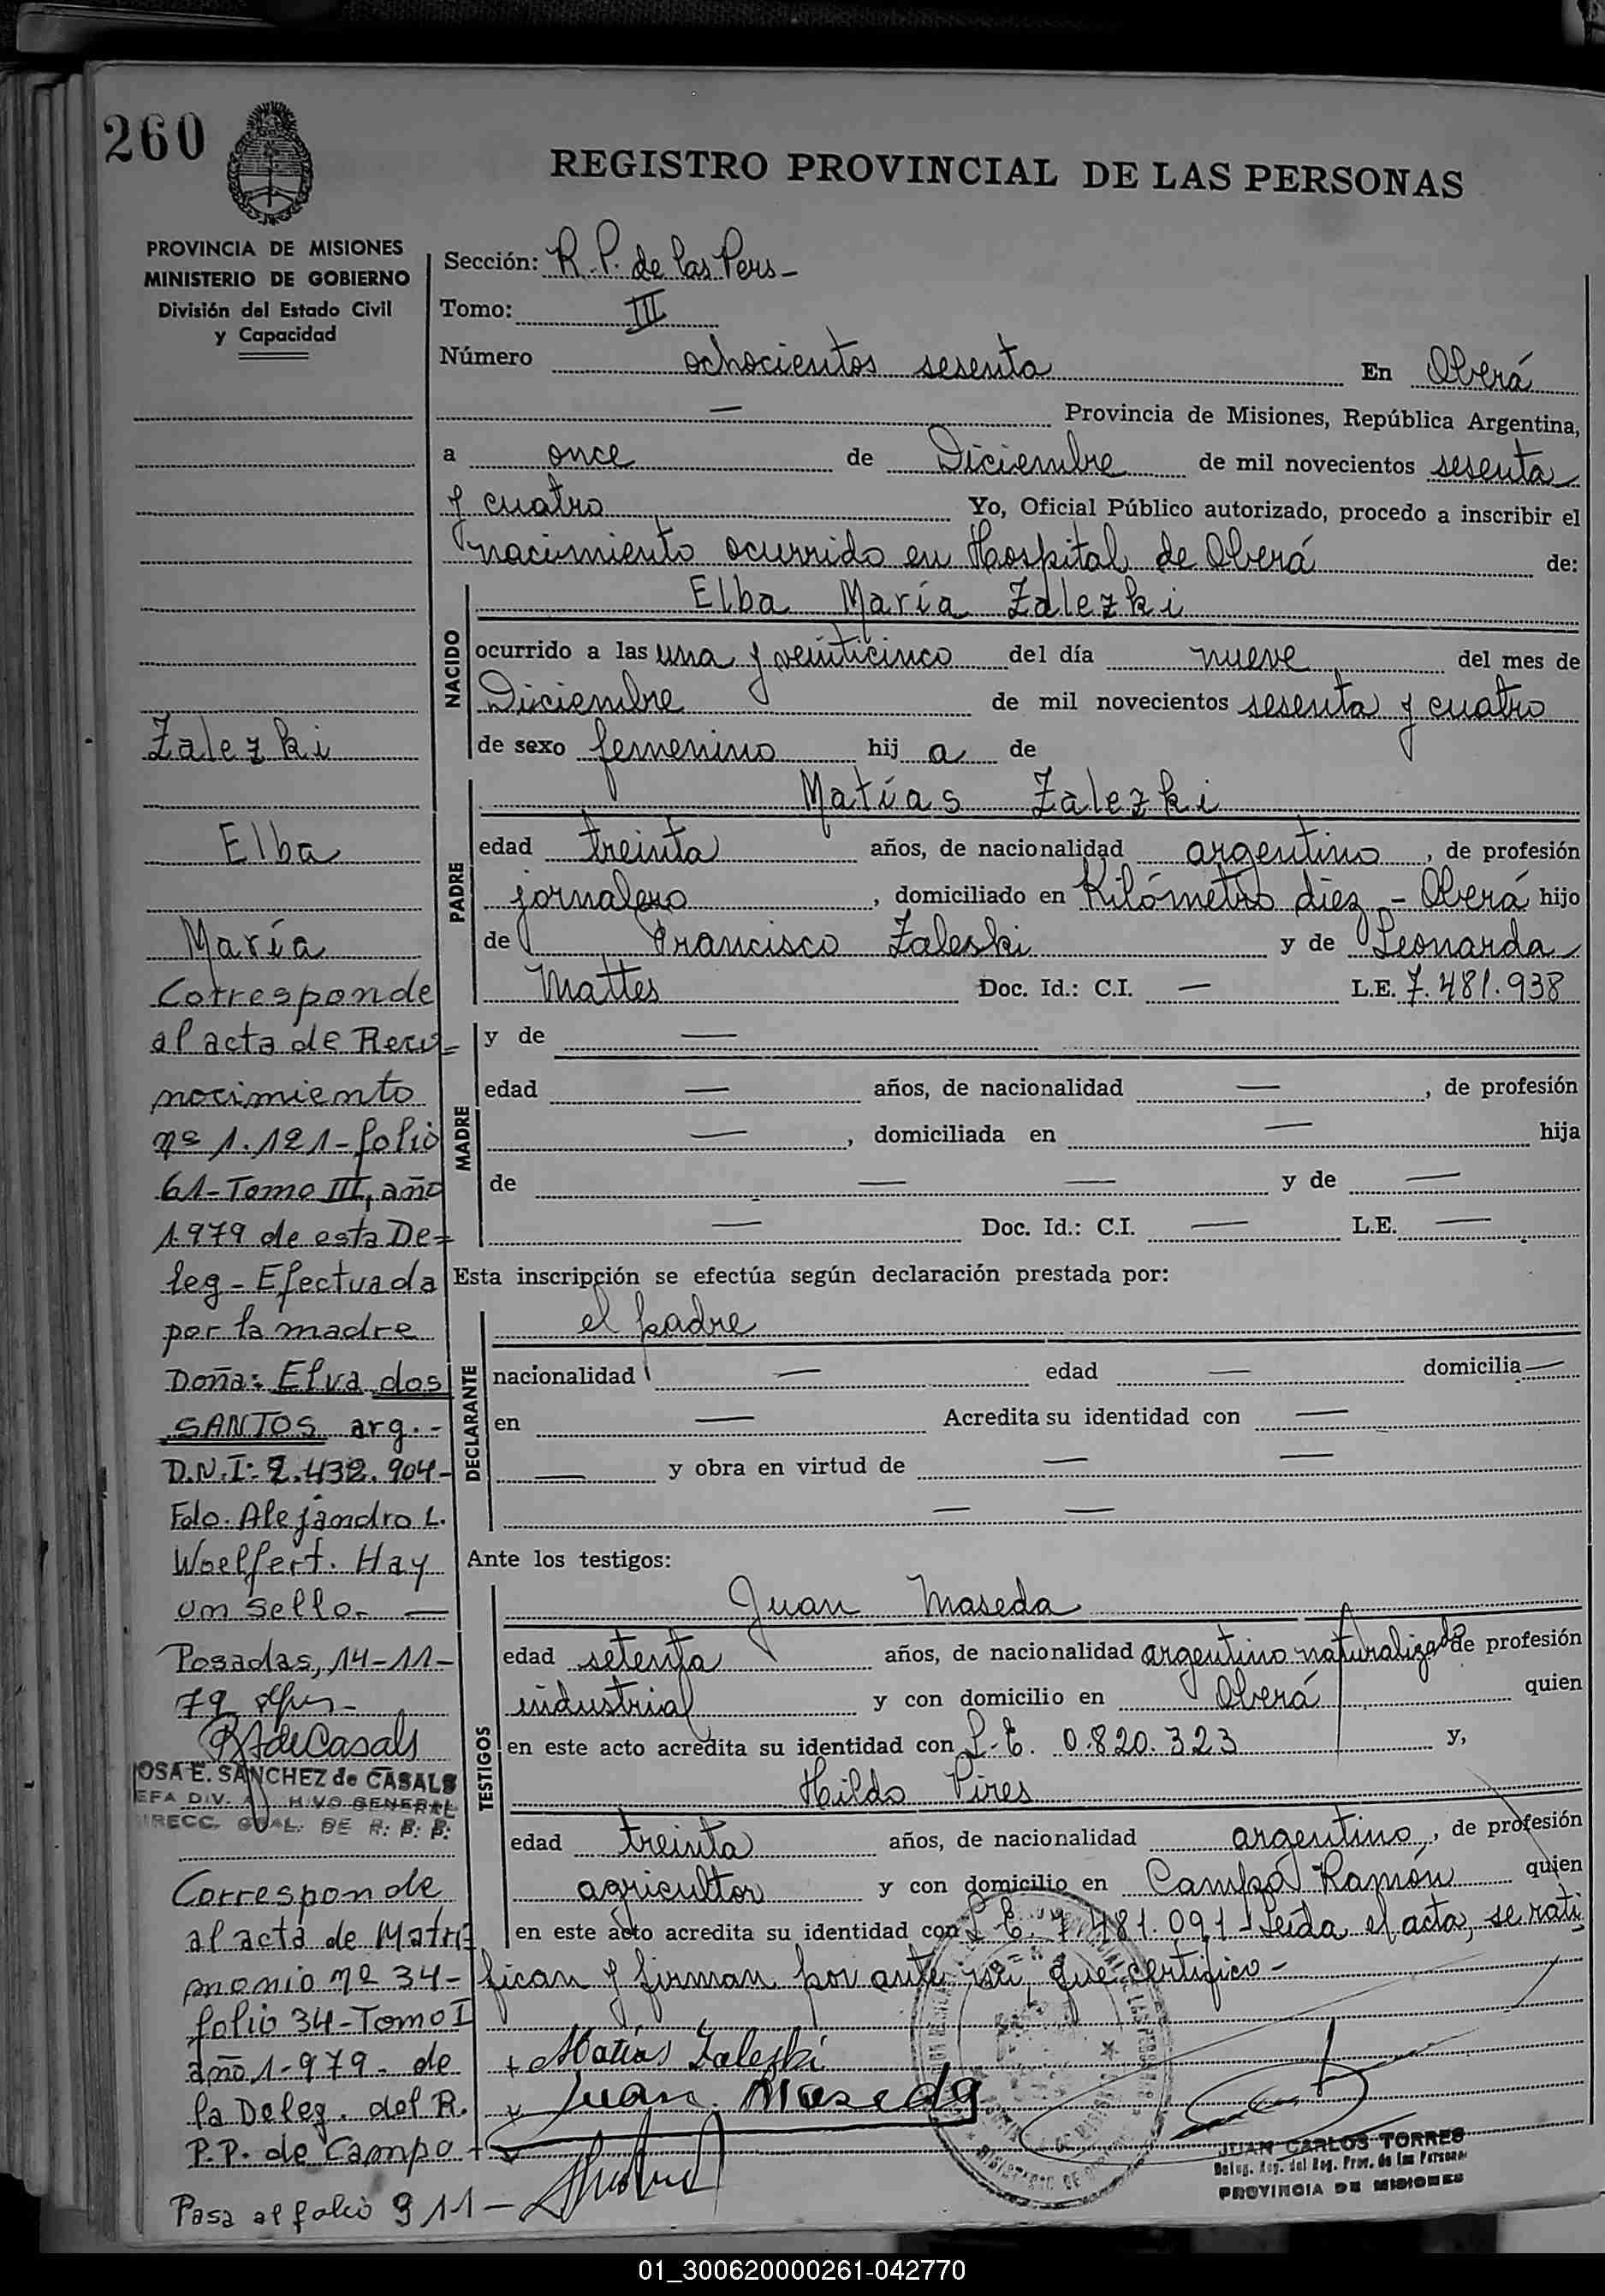 260
REGISTRO PROVINCIAL DE LAS PERSONAS
PROVINCIA DE MISIONES
MINISTERIO DE GOBIERNO
División del Estado Civil
y Capacidad
Zalezki
Elba
María
Corresponde
al acta de Reco=
nocimiento
nº 1.121-folio
61-Tomo III, año
1.979 de esta De=
leg-Efectuada
por la madre
Doña: Elva dos
SANTOS arg.-
D.N.I: 2.432.904-
Fdo. Alejandro L.
Woelfert. Hay
un sello.-
Posadas, 14-11-
79
RAdeCasals
OSA E. SANCHEZ de CASALS
EFA DIV. A HIVO GENERAL
IRECC. GRAL. DE R. P. P.
Corresponde
al acta de Matri
monio nº 34-
folio 34-Tomo I
año 1.979- de
la Deleg. del R.
P.P. de Campo
Pasa al folio 911-
Sección: R.P. de las Pers-
Tomo: III
Número ochocientos sesenta En Oberá
— Provincia de Misiones, República Argentina,
a once de Diciembre de mil novecientos sesenta
y cuatro Yo, Oficial Público autorizado, procedo a inscribir el
nacimiento ocurrido en Hospital de Oberá de:
NACIDO
Elba María Zalezki
ocurrido a las una y veinticinco del día nueve del mes de
Diciembre de mil novecientos sesenta y cuatro
de sexo femenino hij a de
PADRE
Matías Zalezki
edad treinta años, de nacionalidad argentino, de profesión
jornalero, domiciliado en Kilómetro diez - Oberá hijo
de Francisco Zaleski y de Leonarda
Mattes Doc. Id.: C.I. — L.E. 7.481.938
MADRE
y de —
edad — años, de nacionalidad —, de profesión
—, domiciliada en — hija
de — — y de —
— Doc. Id.: C.I. — L.E. —
Esta inscripción se efectúa según declaración prestada por:
DECLARANTE
el padre
nacionalidad — edad — domicilia —
en — Acredita su identidad con —
— y obra en virtud de — —
— —
Ante los testigos:
TESTIGOS
Juan Maseda
edad setenta años, de nacionalidad argentino naturalizado de profesión
industrial y con domicilio en Oberá quien
en este acto acredita su identidad con L.E. 0.820.323 y,
Hildo Pires
edad treinta años, de nacionalidad argentino, de profesión
agricultor y con domicilio en Campo Ramón quien
en este acto acredita su identidad con L.E. 7.481.091-Leída el acta, se rati
fican y firman por ante mí, que certifico-
Matías Zaleski
Juan Maseda
JUAN CARLOS TORRES
Deleg. Reg. del Reg. Prov. de las Personas
PROVINCIA DE MISIONES
01_300620000261-042770